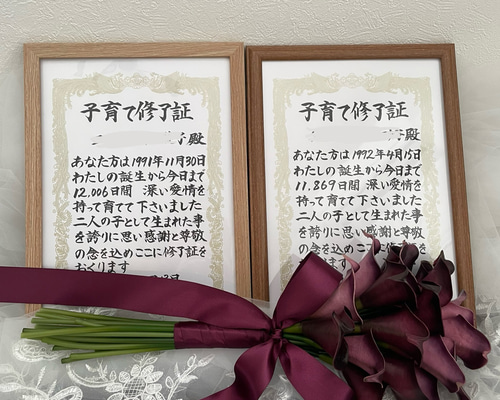 子育て修了証
殿
あなた方は1991年11月30日
わたしの誕生から今日まで
12,006日間 深い愛情を
持って育てて下さいました
二人の子として生まれた事
を誇りに思い感謝と尊敬
の念を込めここに修了証を
おくります
子育て修了証
殿
あなた方は1992年4月15日
わたしの誕生から今日まで
11,869日間 深い愛情を
持って育てて下さいました
二人の子として生まれた事
を誇りに思い感謝と尊敬
の念を込めここに修了証を